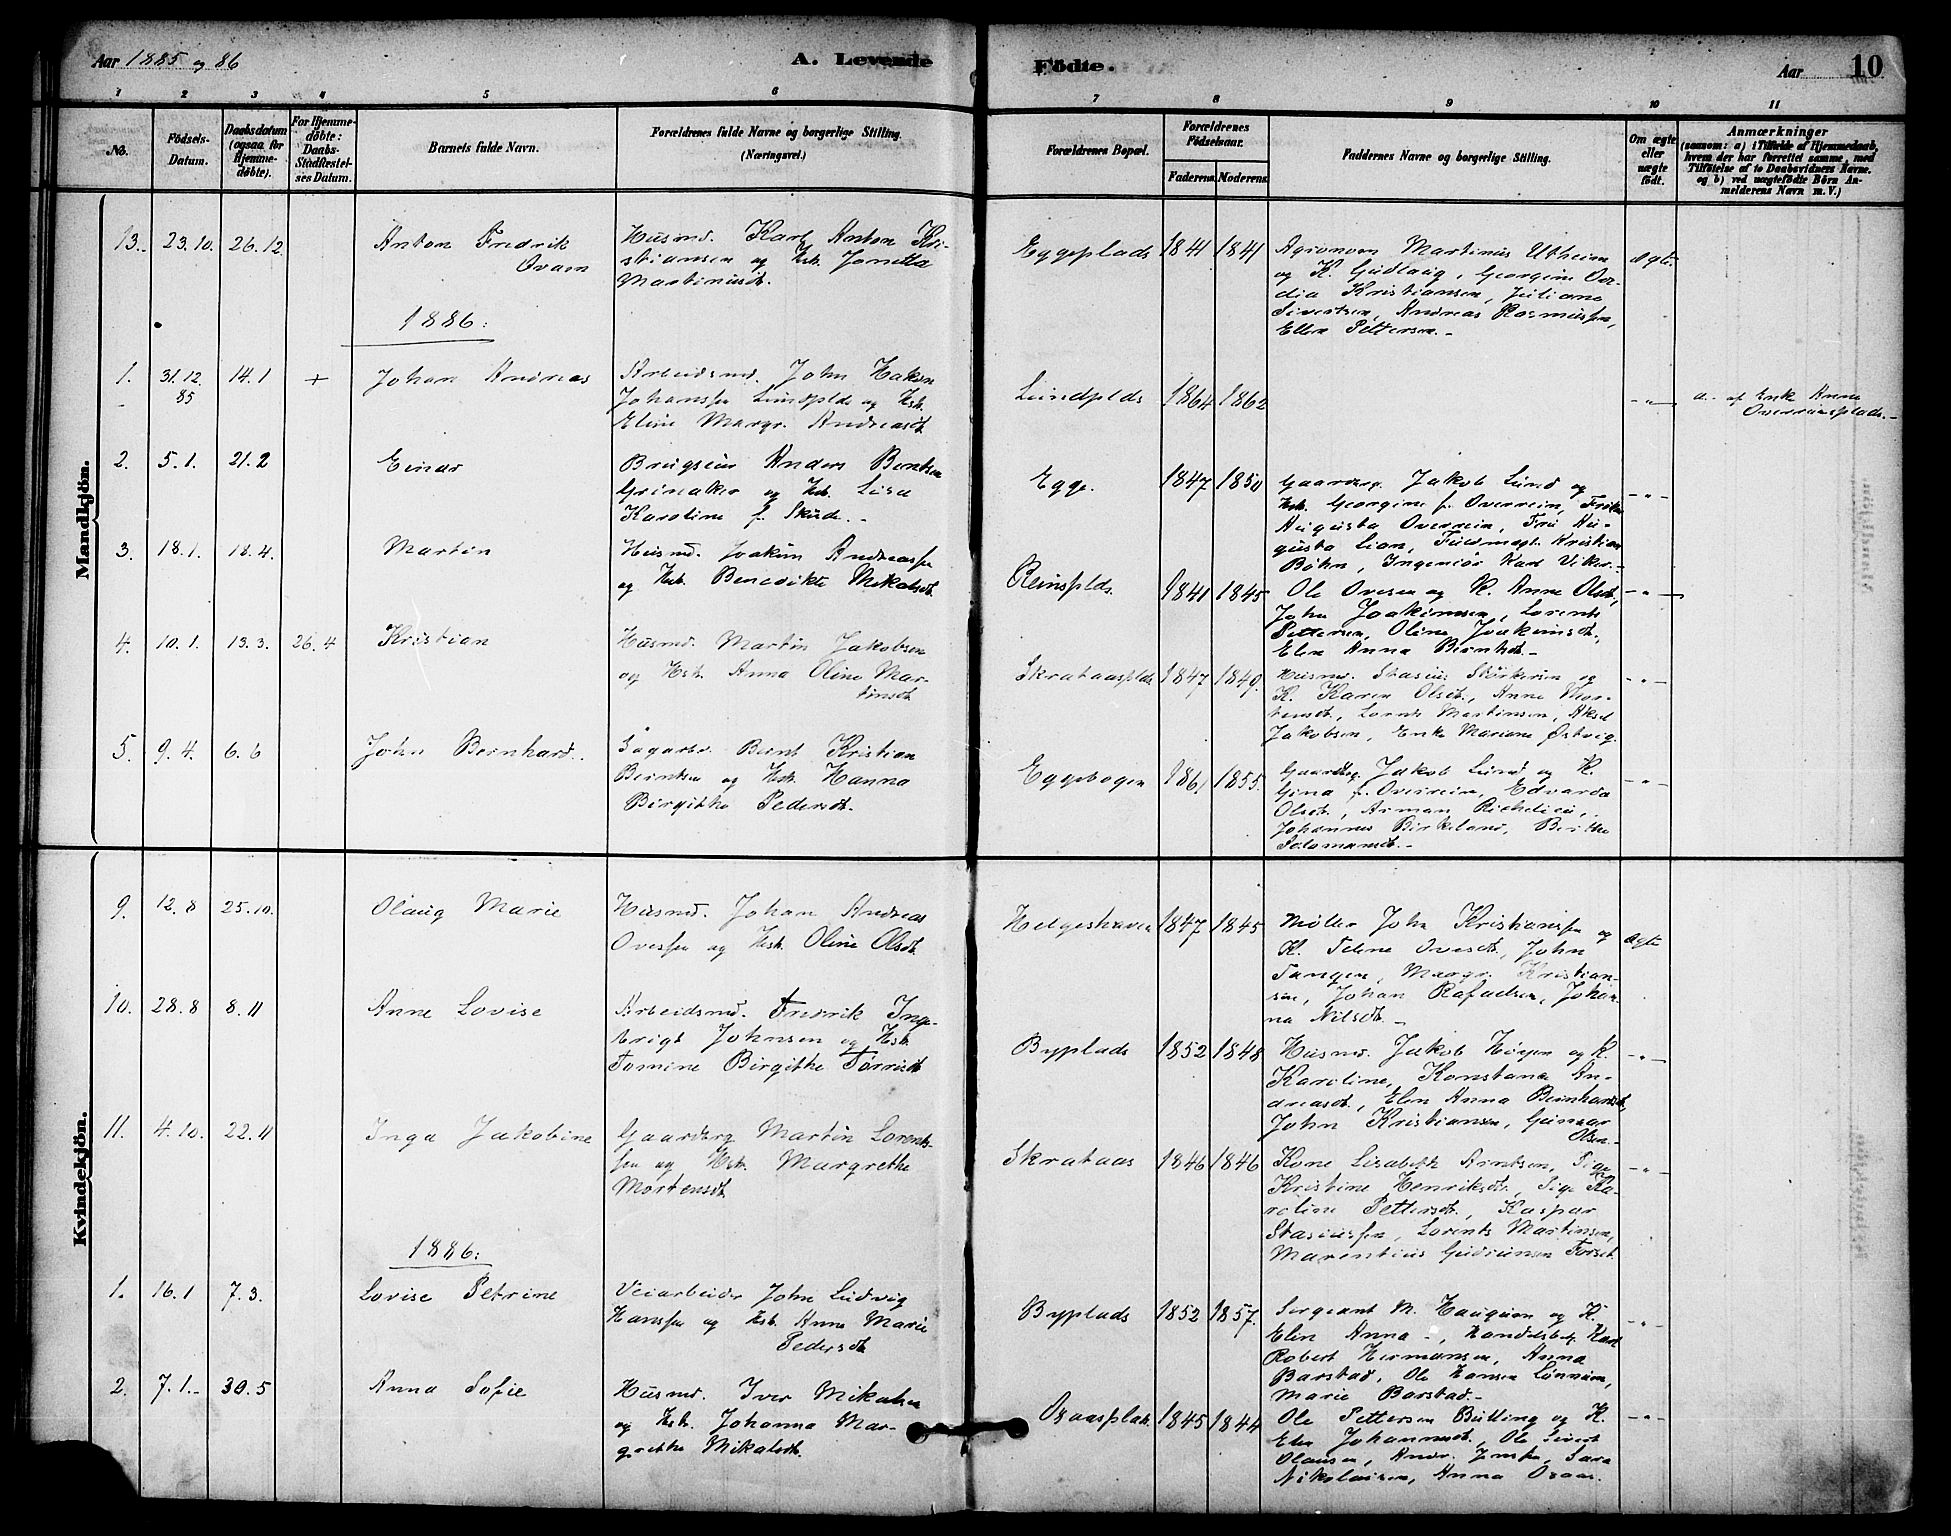 Aar 1885 og 86
A. Levende
Födte.
Aar
10
1 2 3 4 5 6 7 8 9 10 11
No.
Födsels-
Datum.
Daabsdatum
(ogsaa for
Hjemme-
döbte).
For Hjemme-
döbte:
Daabs-
Stadfæstel-
ses Datum.
Barnets fulde Navn.
Forældrenes fulde Navne og borgerlige Stilling.
(Næringsvei.)
Forældrenes Bopæl.
Forældrenes
Födselsaar.
Faderens. Moderens.
Faddernes Navne og borgerlige Stilling.
Om ægte
eller
uægte
født.
Anmærkninger
(saasom: a) i Tilfælde af Hjemmedaab,
hvem der har forrettet samme, med
Tilføielse af to Daabsvidners Navne,
og b) ved uægtefödte Börn An-
melderens Navn m. V.)
Mandkjön.
13. 23.10. 26.12. Anton Fredrik
Ovam
Husmd. Karl Anton Kri-
stiansen og Hst. Jonetta
Martinusdt.
Eggeplads 1841 1841
Agronom Martinus Utheim
og K. Gudlaug, Georgine Ov-
dia Kristiansen, Juliane
Sivertsen, Andreas Rasmussen,
Ellen Pettersen.-
ægte.
1886:
1. 31.12. 85 14.1 + Johan Andreas
Arbeidsmd. John Hakon
Johanssen Lundplds og Hst.
Eline Margr. Andreasdt.
Lundplds 1864 1862 -"-
a. af Enk Anna
Overreinsplads.-
2. 5.1. 21.2 Einar
Brugseier Anders Bentsen
Grinaker og Hst. Lisa
Karoline f. Skude.-
Egge. 1847 1850
Gaardbrg. Jakob Lund og
Hst. Georgine f. Overrein, Frøken
Augusta Overrein, Fru Au-
gusta Lian, Fuldmægt. Kristian
Bøhn, Ingeniør Karl Viker.-
-"-
3. 18.1. 18.4. Martin
Husmd. Joakim Andreassen
og Hst. Benedikte Mikalsdt.
Reinsplds. 1841 1845
Ole Ovesen og K. Anne Olsdt,
John Joakimsen, Lorents
Pettersen, Oline Joakimsdt.,
Elen Anna Berntsdt.-
-"-
4. 10.1. 13.3. 26.4 Kristian
Husmd. Martin Jakobsen
og Hst. Anna Oline Mar-
tinsdt
Skrataasplds 1847 1849.
Husmd. Stasius Størkersen og
K. Karen Olsdt., Anne Mor-
tensdt., Lornts Martinsen, Aksel
Jakobsen, Enke Mariane Østvig.
-"-
5. 9.4. 6.6 John Bernhard.
Sagarbr. Bernt Kristian
Berntsen og Hst. Hanna
Birgitha Pedersdt.
Eggebogen 1861 1855.
Gaardbrg. Jakob Lund og K.
Gina f. Overrein, Edvarda
Olsdt., Arman Richelieu,
Johannes Birkeland, Berithe
Salamonsdt.-
-"-
Kvindekjön.
9. 12.8 25.10. Olaug Marie
Husmd. Johan Andreas
Ovessen og Hst. Oline Olsdt.
Helgeshaven 1847 1845
Møller John Kristianssen og
K. Feline Ovesdt., John
Tangen, Margr. Kristian-
sen, Johan Rafaelsen, Johan-
na Nilsdt.-
ægte
10. 28.8 8.11 Anne Lovise
Arbeidsmd. Fredrik Inge-
brigt Johnsen og Hst.
Tomine Birgithe Torrisdt
Byplads 1852 1848
Husmd. Jakob Høyen og K.
Karoline, Konstanse An-
dreasdt., Elen Anna Bernhardsdt.,
John Kristiansen, Gunnar
Olsen.-
-"-
11. 4.10. 22.11 Inga Jakobine
Gaardbrg Martin Lorents-
sen og Hst. Margrethe
Mortensdt
Skrataas 1846 1846
Kone Lisabeth Arntsen, Pige
Kristine Henriksdt., Pige Ka-
roline Pettersdt., Kaspar
Stasiussen, Lorents Martinsen,
Marentius Gudmunsen Forset.
-"-
1886:
1. 16.1 7.3. Lovise Petrine
Veiarbeider John Ludvig
Hanssen og Hst. Anne Marie
Pedersdt
Byplads 1852 1857.
Sergeant M. Haugum og K.
Elen Anna -, Handelsbtj. Karl
Robert Hermansen, Anna
Barstad, Ole Hansen Lønnum,
Marie Barstad.-
-"-
2. 7.1.- 30.5 Anna Sofie
Husmd. Iver Mikalsen
og Hst. Johanna Mar-
grethe Mikalsdt.
Oxaasplads 1845 1844
Ole Pettersen Bulling og K.
Elen Johannesdt., Ole Sivert
Olausen, Andr. Jensen, Sara
Nikolaisen, Anna Oxaas.
-"-